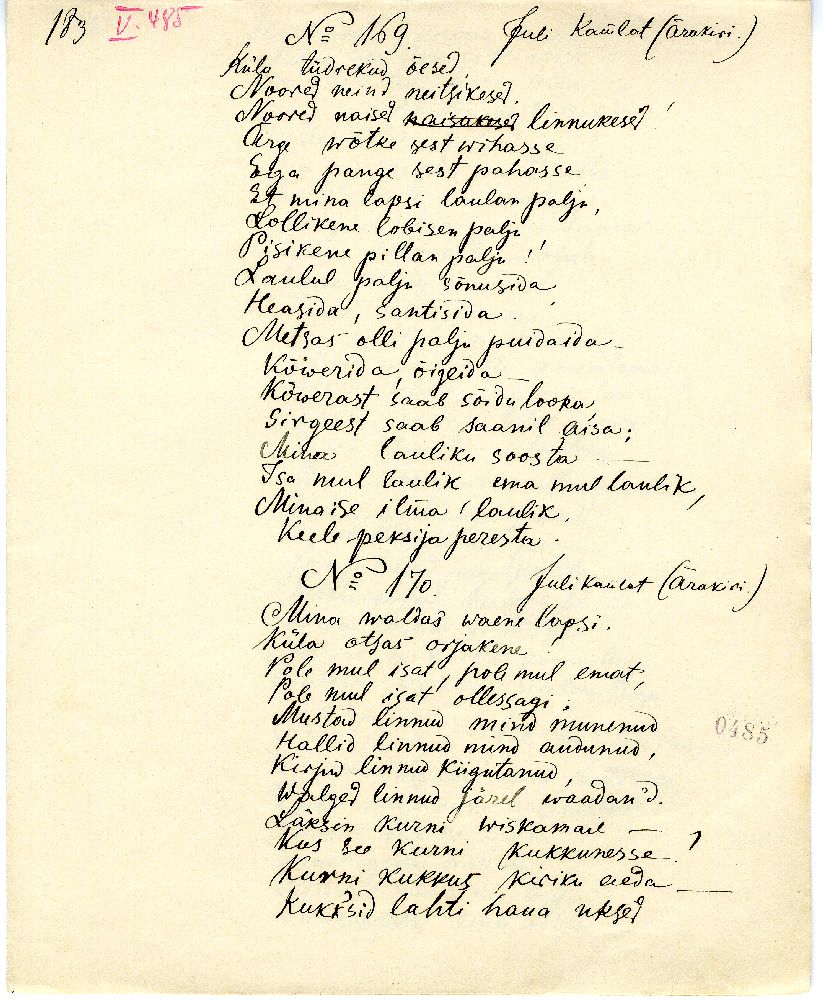 183 V. 485
No 169. Juli Kaulat (Ärakiri.)
Küla tüdrekud öesed,
Noored neind neitsikesed,
Noored naised naisukesed linnukesed!
Ärge wõtke sest wihasse
Ega pange sest pahasse
Et mina lapsi laulan palju,
Lollikene lobisen palju
Pisikene pillan palju!
Laulul palju sõnusida
Heasida, santisida.
Metsas olli palju puidaida
Kõwerida, õigeida
Kõwerast saab sõidu looka,
Sirgeest saab saanil aisa;
Mina lauliku soosta —
Isa mul laulik ema mul laulik,
Minaise ilma laulik,
Keele peksija peresta.
No 170. Juli Kaulat (Ärakiri.)
Mina waldas waene lapsi.
Küla otsas orjakene
Pole mul isat, pole mul emat,
Pole mul isat ollessagi.
Mustad linnud mind munenud
Hallid linnud mind audunud,
Kirjud linnud kiigutanud,
Walged linnud järel waadan'd.
Läksin kurni wiskamaie —
Kus see kurni kukkunesse —?
Kurni kukkus kiriku aeda —
Kukksid lahti haua uksed
0485